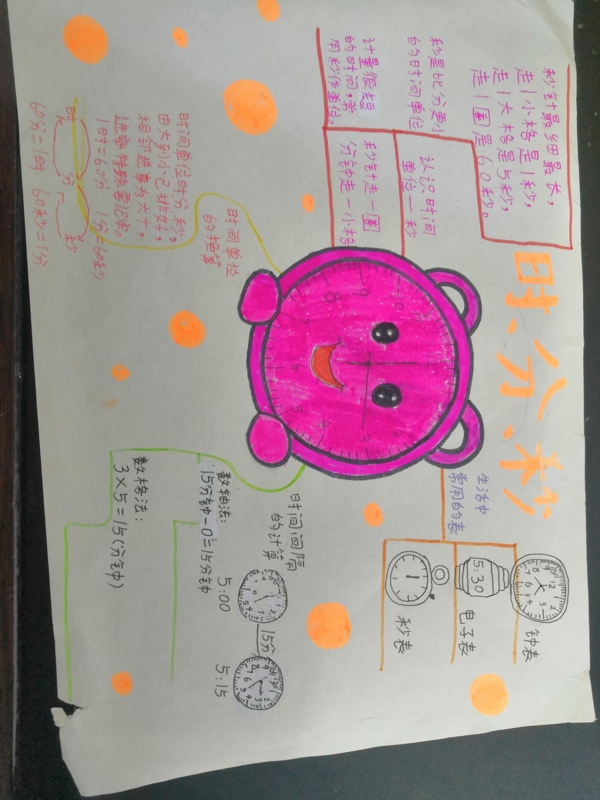 时、分、秒
秒针最细最长，
走1小格是1秒，
走1大格是5秒，
走1圈是60秒。
认识时间
单位—秒
秒是比分更小
的时间单位
秒针走一圈
分钟走一小格
计量很短
的时间，常
用秒作单位。
时间单位
的换算
时间单位时分秒，
由大到小已排好，
相邻进率为六十。
1时=60分 1分=60秒
时 分 秒
60分=1时 60秒=1分
生活中
常用的表
钟表
5:30
电子表
秒表
时间间隔
的计算
5:00
15分
5:15
数轴法：
15分钟-0=15分钟
数格法：
3×5=15(分钟)